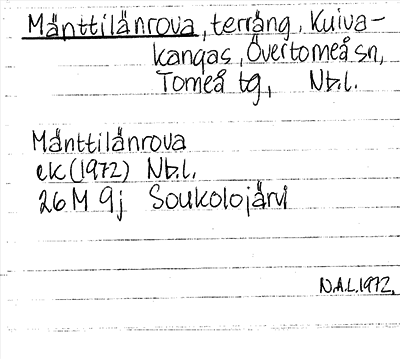 Mänttilänrova, terräng, Kuiva-
kangas, Övertorneå sn,
Torneå tg, Nb.l.
Mänttilänrova
ek (1972) Nb.l.
26 M 9j Soukolojärvi
N.A.L. 1972.